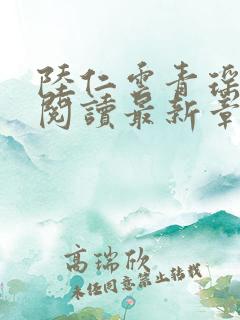 陸仁雲青瑤
閱讀最新章
高瑞欣
未经同意禁止转载